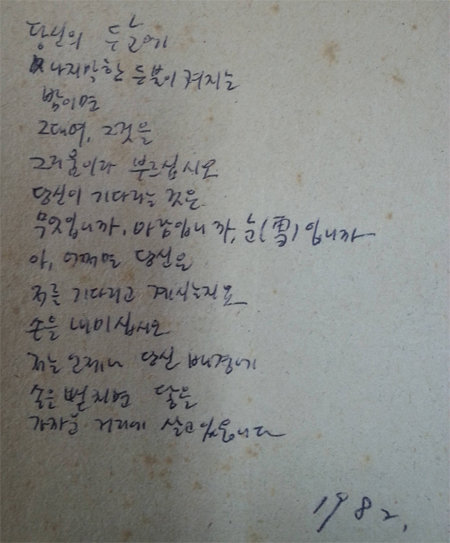 당신의 두 눈에
나지막한 등불이 켜지는
밤이면
그대여, 그것을
그리움이라 부르십시오
당신이 기다리는 것은
무엇입니까, 바람입니까, 눈(雪)입니까
아, 어쩌면 당신은
저를 기다리고 계시는지요
손을 내미십시오
저는 언제나 당신 배경에
손을 뻗치면 닿을
가까운 거리에 살고 있읍니다
1982.